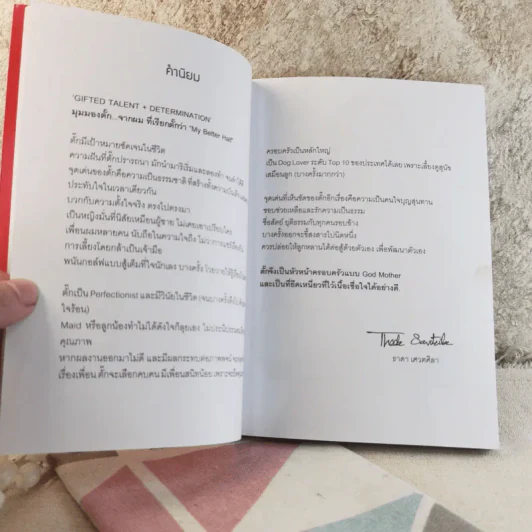 คำนิยม
'GIFTED TALENT + DETERMINATION'
มุมมองตั๊ก...จากผม ที่เรียกตั๊กว่า "My Better Half"
ตั๊กมีเป้าหมายชัดเจนในชีวิต
ความฝันที่ตั๊กปรารถนา มักนำมาริเริ่มและลองทำ
จุดเด่นของตั๊กคือความเป็นธรรมชาติ ที่สร้างความ
ประทับใจในเวลาเดียวกัน
บวกกับความตั้งใจจริง ตรงไปตรงมา
เป็นหญิงมั่นที่นิสัยเหมือนผู้ชาย ไม่เคยเอาเปรียบใคร
เพื่อนผมหลายคน นับถือในความใจถึง
การเลี้ยงโดยกล้าเป็นเจ้ามือ
พนันกอล์ฟแบบสู้เต็มที่ใจนักเลง บางครั้ง
ตั๊กเป็น Perfectionist และมีวินัยในชีวิต
ใจร้อน)
Maid หรือลูกน้องทำไม่ได้ดังใจก็ลุยเอง
คุณภาพ
หากผลงานออกมาไม่ดี และมีผลกระทบต่อภาพ
เรื่องเพื่อน ตั๊กจะเลือกคบคน มีเพื่อนสนิทน้อย
ครอบครัวเป็นหลักใหญ่
เป็น Dog Lover ระดับ Top 10 ของประเทศได้เลย เพราะเลี้ยงดูสุนัข
เสมือนลูก (บางครั้งมากกว่า)
จุดเด่นที่เห็นชัดของตั๊กอีกเรื่องคือความเป็นคนใจบุญสุนทาน
ชอบช่วยเหลือและรักความเป็นธรรม
ซื่อสัตย์ ยุติธรรมกับทุกคนรอบข้าง
บางครั้งออกจะขี้สงสารไปนิดหนึ่ง
ควรปล่อยให้ลูกหลานได้ต่อสู้ด้วยตัวเอง เพื่อพัฒนาตัวเอง
ตั๊กจึงเป็นหัวหน้าครอบครัวแบบ God Mother
และเป็นที่ยึดเหนี่ยวที่ไว้เนื้อเชื่อใจได้อย่างดี.
ธาดา เศวตศิลา